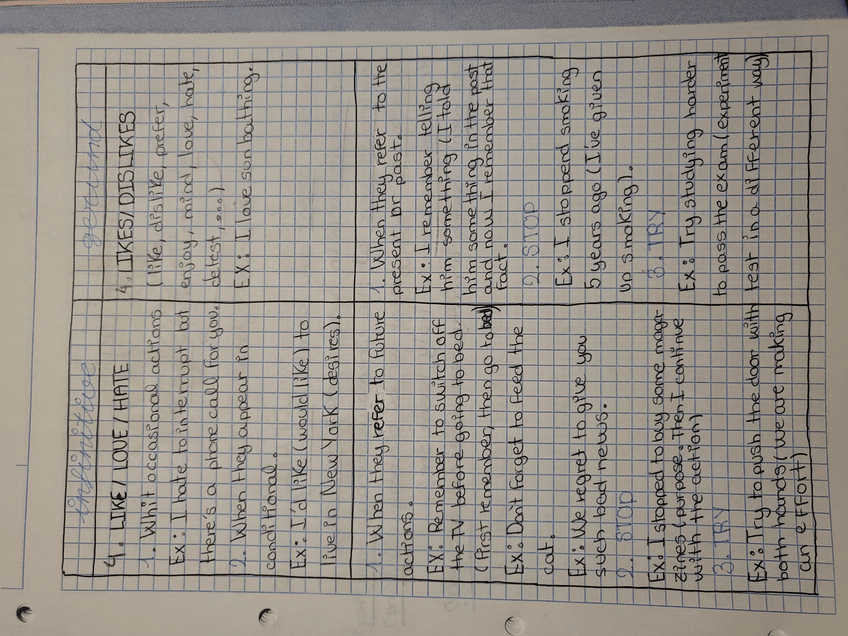 infinitive
4. LIKE/LOVE/HATE
1. Whit occasional actions
Ex: I hate to interrupt but
there's a phone call for you.
2. When they appear in
conditional.
Ex: I'd like (would like) to
live in New York (desires).
1. When they refer to future
actions.
EX: Remember to switch off
the TV before going to bed.
(First remember, then go to bed)
Ex: Don't forget to feed the
cat.
Ex: We regret to give you
such bad news.
2. STOP
Ex: I stopped to buy some maga-
zines (purpose. Then I continue
with the action)
3. TRY
Ex: Try to push the door with
both hands (we are making
an effort)
gerund
4. LIKES/DISLIKES
(like, dislike, prefer,
enjoy, mind, love, hate,
detest, ...)
EX: I love sun bathing.
1. When they refer to the
present or past.
Ex: I remember telling
him something (I told
him something in the past
and now I remember that
fact.
2. STOP
Ex: I stoppend smoking
5 years ago (I've given
up smoking).
3. TRY
Ex: Try studying harder
to pass the exam (experiment
test in a different way)